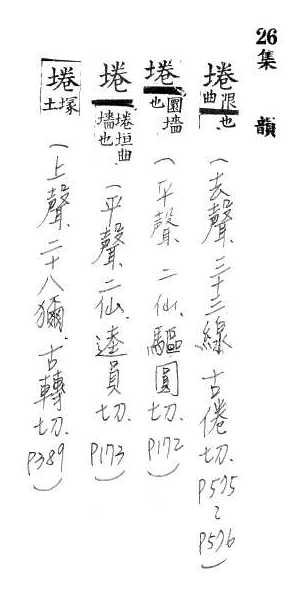 26 集韻
埢曲限也(去聲、三十三線 古倦切. P575~P576)
埢圜墻也(平聲、二仙、驅圓切. P172)
埢埢垣曲墻也(平聲、二仙、逵員切. P173)
埢塚土(上聲、二十八獮、古轉切. P389)